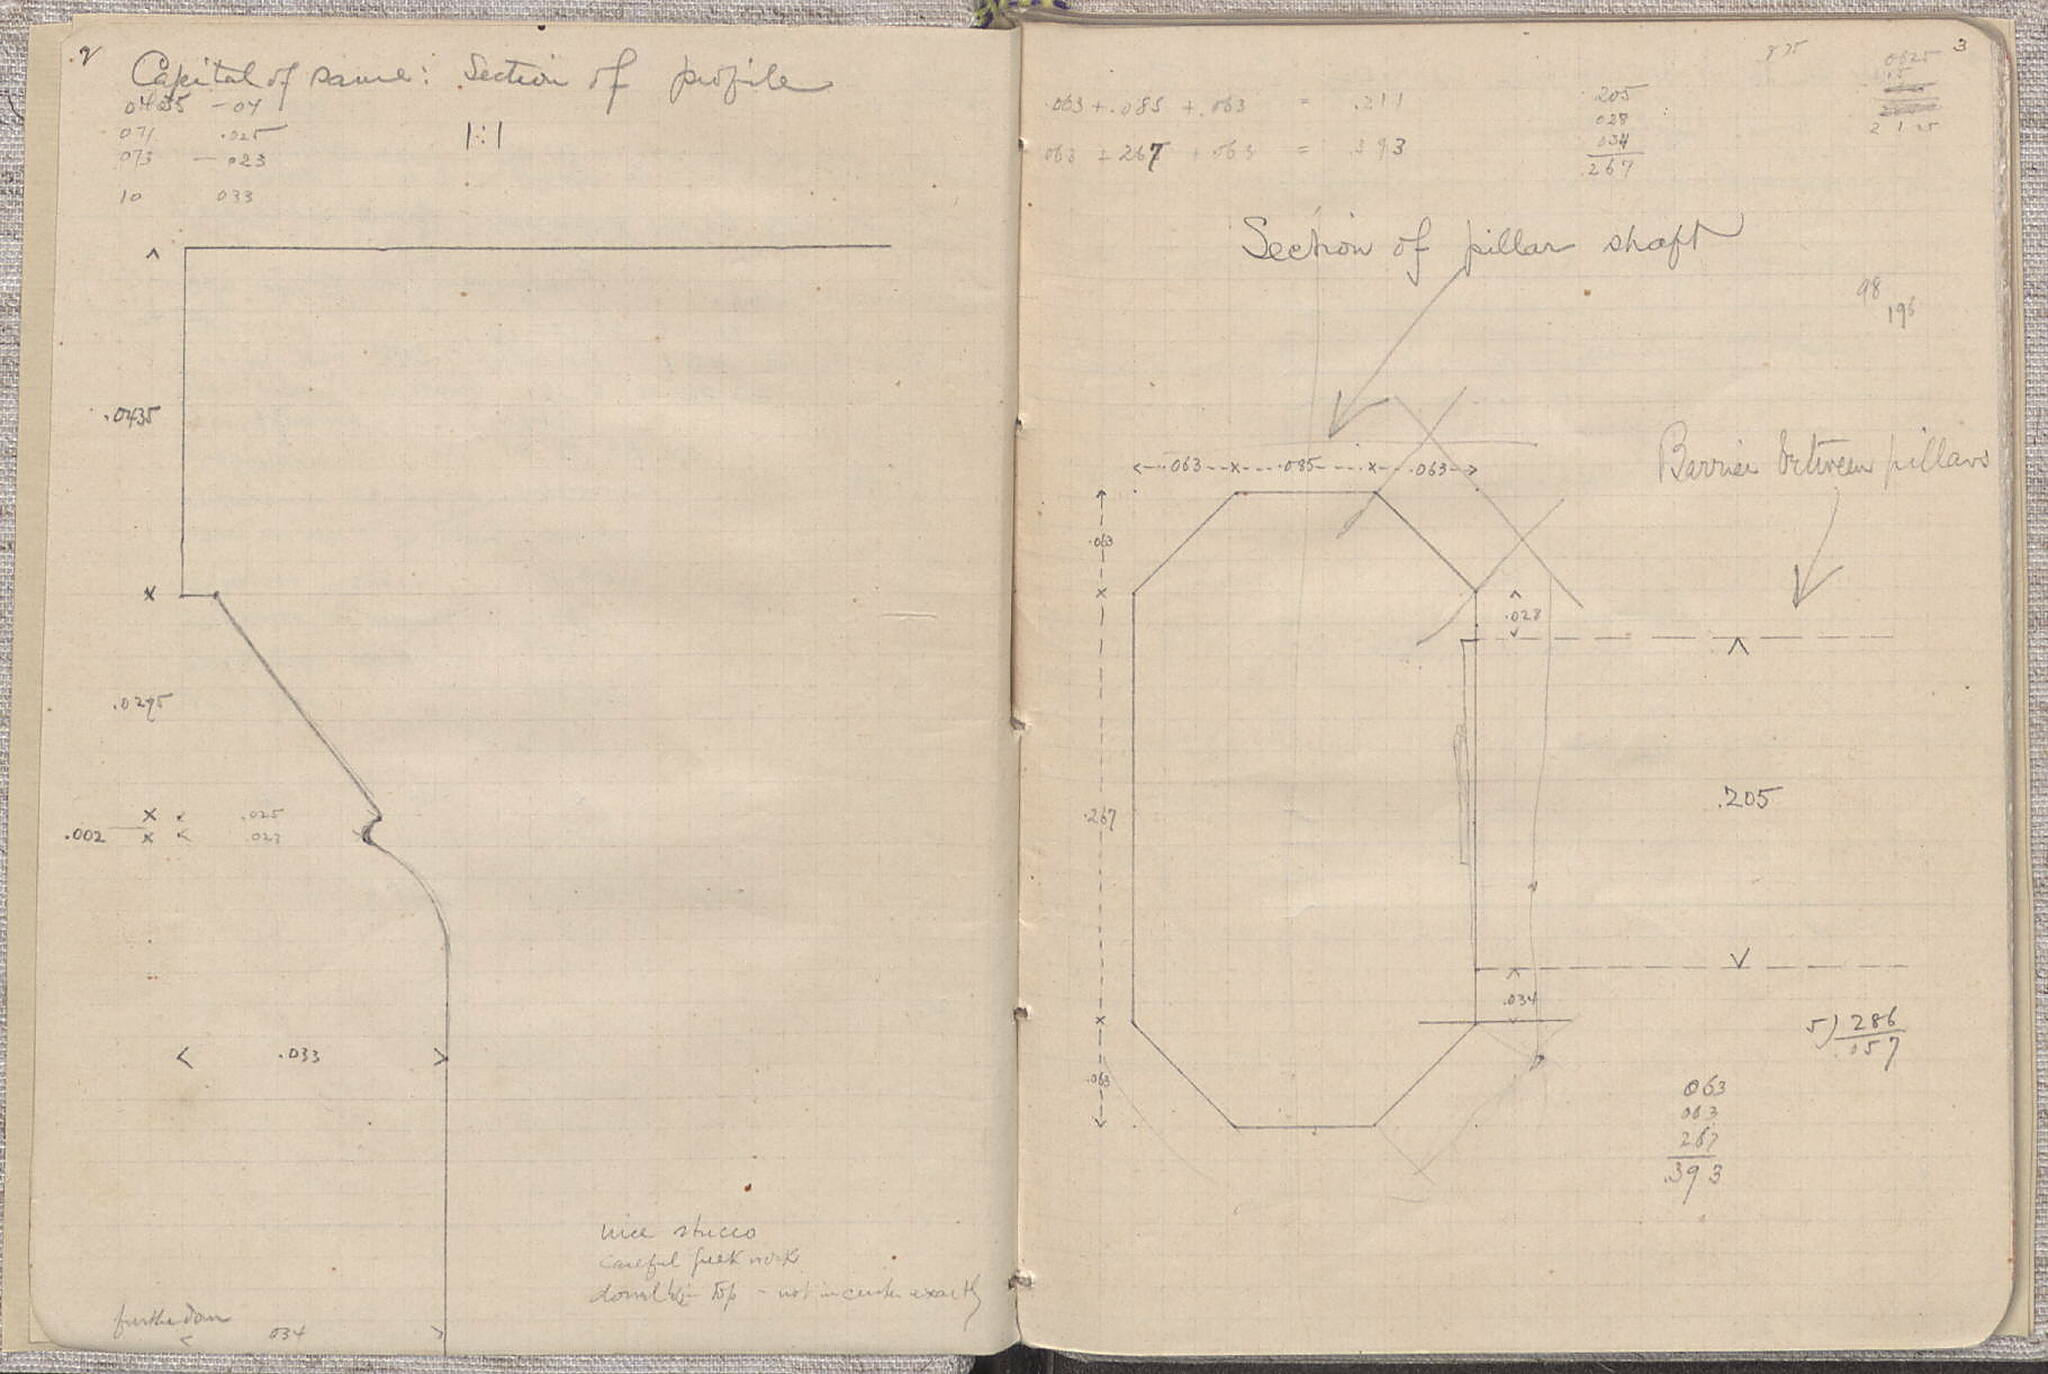 2
Capital of same: Section of profile
0435 – 04
071 .025
073 – 023
10 033
1:1
.0435
.0295
.025
.002 .023
.033
nice stucco
careful Greek work
in top – not in center exactly
further down
034
3
.063 + .085 + .063 = .211
063 + 267 + .063 = .393
205
028
034
.267
0625
2 1 25
Section of pillar shaft
98
196
Barrier between pillars
.063 .085 .063
.063
.028
.267
.205
.034
.063
5) 286
.057
063
063
267
.393